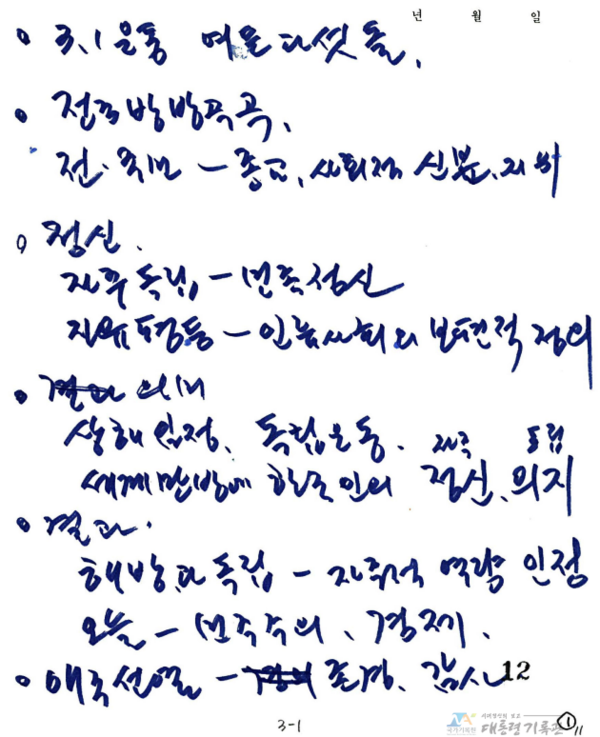 년 월 일
• 3.1운동 여든다섯돌.
• 전국방방곡곡.
전·국민 - 종교, 사회적 신분, 지위
• 정신.
자주독립 - 민족정신
자유평등 - 인류사회의 보편적 정의
• 결과 의미
상해임정. 독립운동. 자주 독립
세계만방에 한국인의 정신, 의지
• 결과.
해방과 독립 - 자주적 역량 인정
오늘 - 민주주의, 경제.
• 애국선열 - 존경, 감사
12
3-1
국가기록원
대통령기록관
1
11